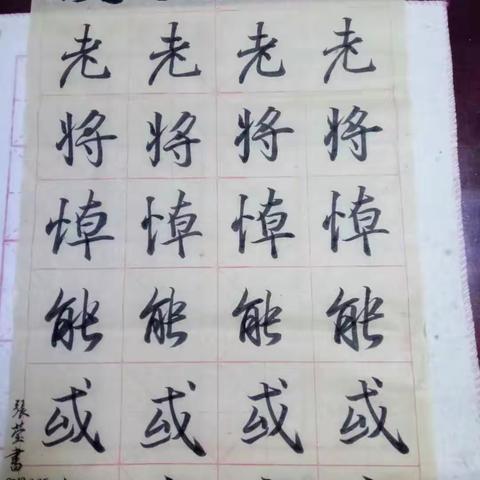 老老老老
将将将将
悼悼悼悼
能能能能
或或或或
張莹書